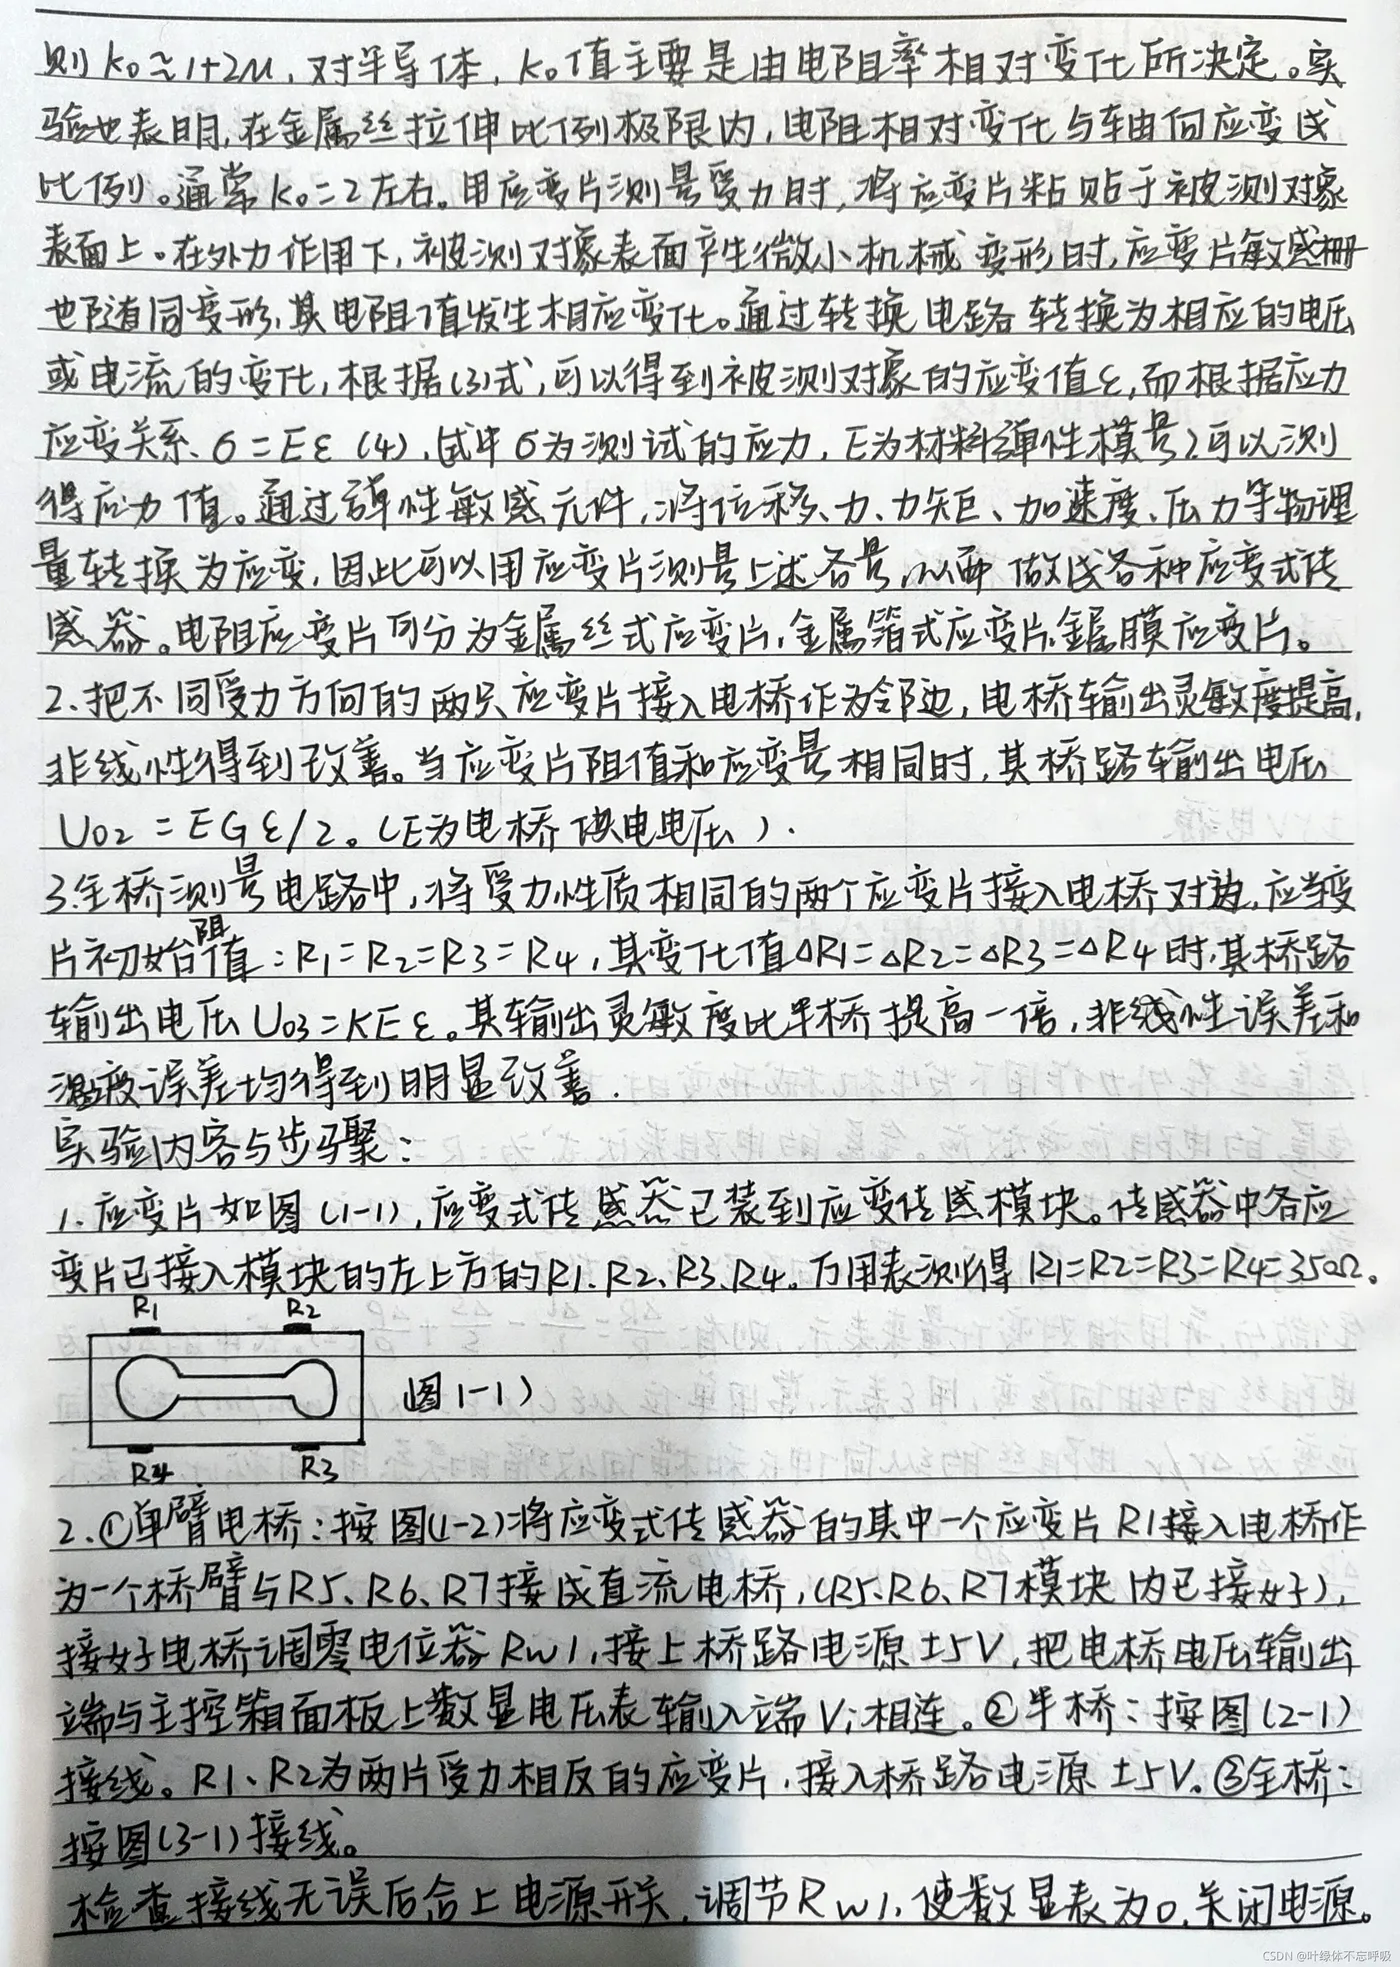 则k0≈1+2μ,对半导体,k0值主要是由电阻率相对变化所决定。实
验也表明,在金属丝拉伸比例极限内,电阻相对变化与轴向应变成
比例。通常k0=2左右。用应变片测量受力时,将应变片粘贴于被测对象
表面上。在外力作用下,被测对象表面产生微小机械变形时,应变片敏感栅
也随同变形,其电阻值发生相应变化。通过转换电路转换为相应的电压
或电流的变化,根据(3)式,可以得到被测对象的应变值ε,而根据应力
应变关系、σ=Eε(4),(式中σ为测试的应力,E为材料弹性模量)可以测
得应力值。通过弹性敏感元件,将位移、力、力矩、加速度、压力等物理
量转换为应变,因此可以用应变片测量上述各量,从而做成各种应变式传
感器。电阻应变片可分为金属丝式应变片,金属箔式应变片,金属膜应变片。
2.把不同受力方向的两只应变片接入电桥作为邻边,电桥输出灵敏度提高,
非线性得到改善。当应变片阻值和应变量相同时,其桥路输出电压
U02=EGε/2。(E为电桥供电电压).
3.全桥测量电路中,将受力性质相同的两个应变片接入电桥对边,应当变
片初始阻值:R1=R2=R3=R4,其变化值△R1=△R2=△R3=△R4时,其桥路
输出电压U03=KEε。其输出灵敏度比半桥提高一倍,非线性误差和
温度误差均得到明显改善.
实验内容与步骤:
1.应变片如图(1-1),应变式传感器已装到应变传感模块。传感器中各应
变片已接入模块的左上方的R1、R2、R3、R4。万用表测得R1=R2=R3=R4=350Ω。
R1 R2
(图1-1)
R4 R3
2.①单臂电桥:按图(1-2)将应变式传感器的其中一个应变片R1接入电桥作
为一个桥臂与R5、R6、R7接成直流电桥,(R5、R6、R7模块内已接好),
接好电桥调零电位器Rw1,接上桥路电源±5V,把电桥电压输出
端与主控箱面板上数显电压表输入端Vi相连。②半桥:按图(2-1)
接线。R1、R2为两片受力相反的应变片,接入桥路电源±5V。③全桥:
按图(3-1)接线。
检查接线无误后合上电源开关,调节Rw1,使数显表为0,关闭电源。
CSDN @叶绿体不忘呼吸